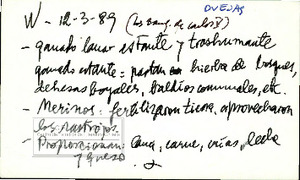 OVEJAS
W - 12-3-89 (los Bang. de Carlos V)
- ganado lanar estante y trashumante
ganado estante = pastan hierba de bosques,
dehesas boyales, baldíos comunales, etc.
- Merinos: fertilizaron tierra, aprovecharon
los rastrojos
- Proporcionan: lana, carne, crías, leche
y queso